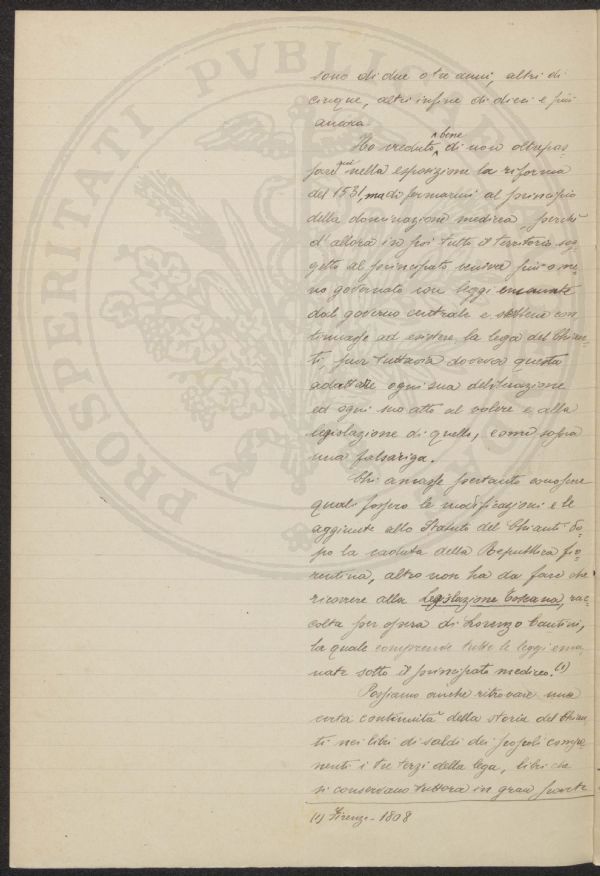 sono di due o tre anni, altri di
cinque, altri infine di dieci e più
ancora.
Ho creduto bene di non oltrepas-
sare qui nella esposizione la riforma
del 1531, ma di fermarmi al principio
della dominazione medicea, perchè
d'allora in poi tutto il territorio sog-
getto al principato veniva più o me-
no governato con leggi emanate
dal governo centrale e sebbene con
tinuasse ad esistere la lega del Chian-
ti, pur tuttavia doveva questa
adattare ogni sua deliberazione
ed ogni suo atto al volere e alla
legislazione di quello, come sopra
una falsariga.
Chi amasse pertanto conoscere
quali fossero le modificazioni e le
aggiunte allo Statuto del Chianti do-
po la caduta della Repubblica fio-
rentina, altro non ha da fare che
ricorrere alla Legislazione Toscana, rac-
colta per opera di Lorenzo Cantini,
la quale comprende tutte le leggi ema-
nate sotto il principato mediceo. (1)
Possiamo anche ritrovare una
certa continuità della storia del Chian
ti nei libri di saldi dei popoli compo-
nenti i tre terzi della lega, libri che
si conservano tuttora in gran parte
(1) Firenze - 1808
PROSPERITATI PVBLICAE